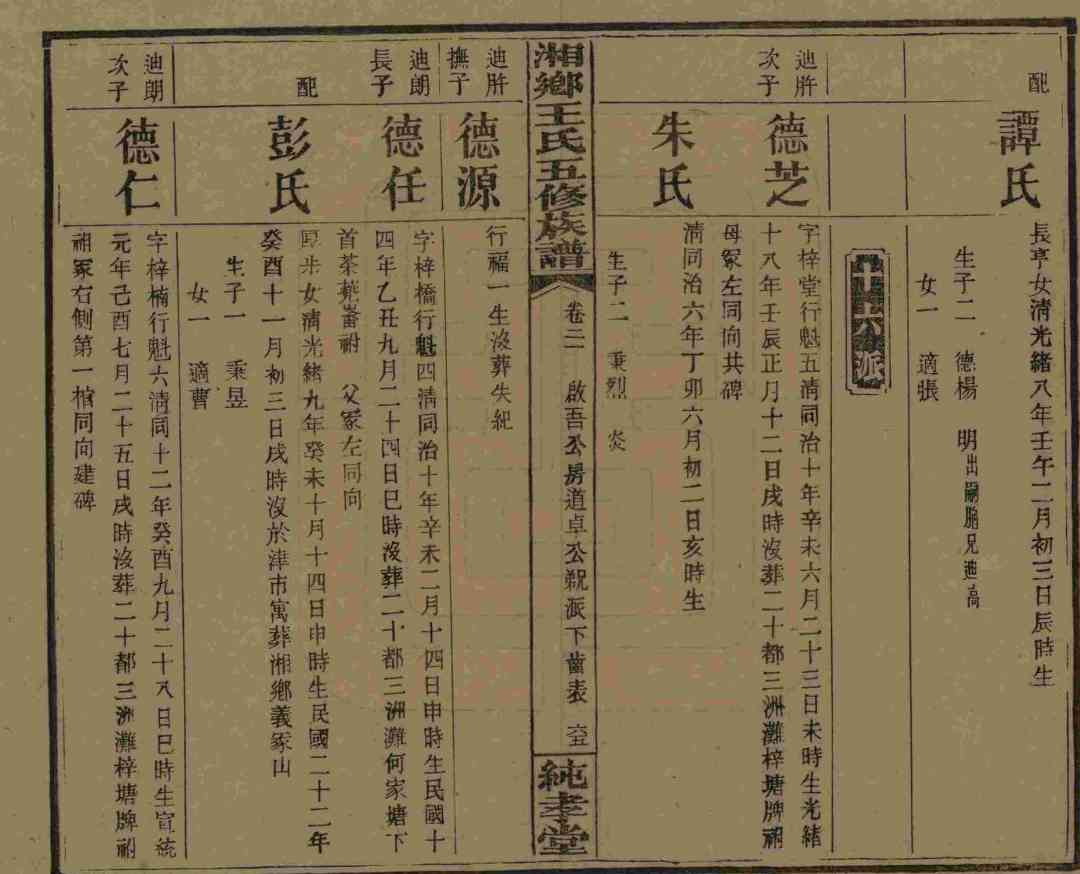 配
譚氏
長亨女清光緒八年壬午二月初三日辰時生
生子二 德楊 明出嗣胞兄迪高
女一 適張
廿六派
迪胙次子
德芝
字梓堂行魁五清同治十年辛未六月二十三日未時生光緒
十八年壬辰正月十二日戌時沒葬二十都三洲灘梓塘牌祔
母冢左同向共碑
朱氏
清同治六年丁卯六月初二日亥時生
生子二 秉烈 炎
湘鄉王氏五修族譜
卷三 啟吾公房道卓公派下齒表 六五
純孝堂
迪胙撫子
德源
行福一生沒葬失紀
迪朗長子
德任
字梓橋行魁四清同治十年辛未二月十四日申時生民國十
四年乙丑九月二十四日巳時沒葬二十都三洲灘何家塘下
首茶蔸崙祔 父冢左同向
配
彭氏
女清光緒九年癸未十月十四日申時生民國二十二年
癸酉十一月初三日戌時沒於津市寓葬湘鄉義冢山
生子一 秉昱
女一 適曹
迪朗次子
德仁
字梓楠行魁六清同十二年癸酉九月二十八日巳時生宣統
元年己酉七月二十五日戌時沒葬二十都三洲灘梓塘牌祔
祖冢右側第一棺同向建碑